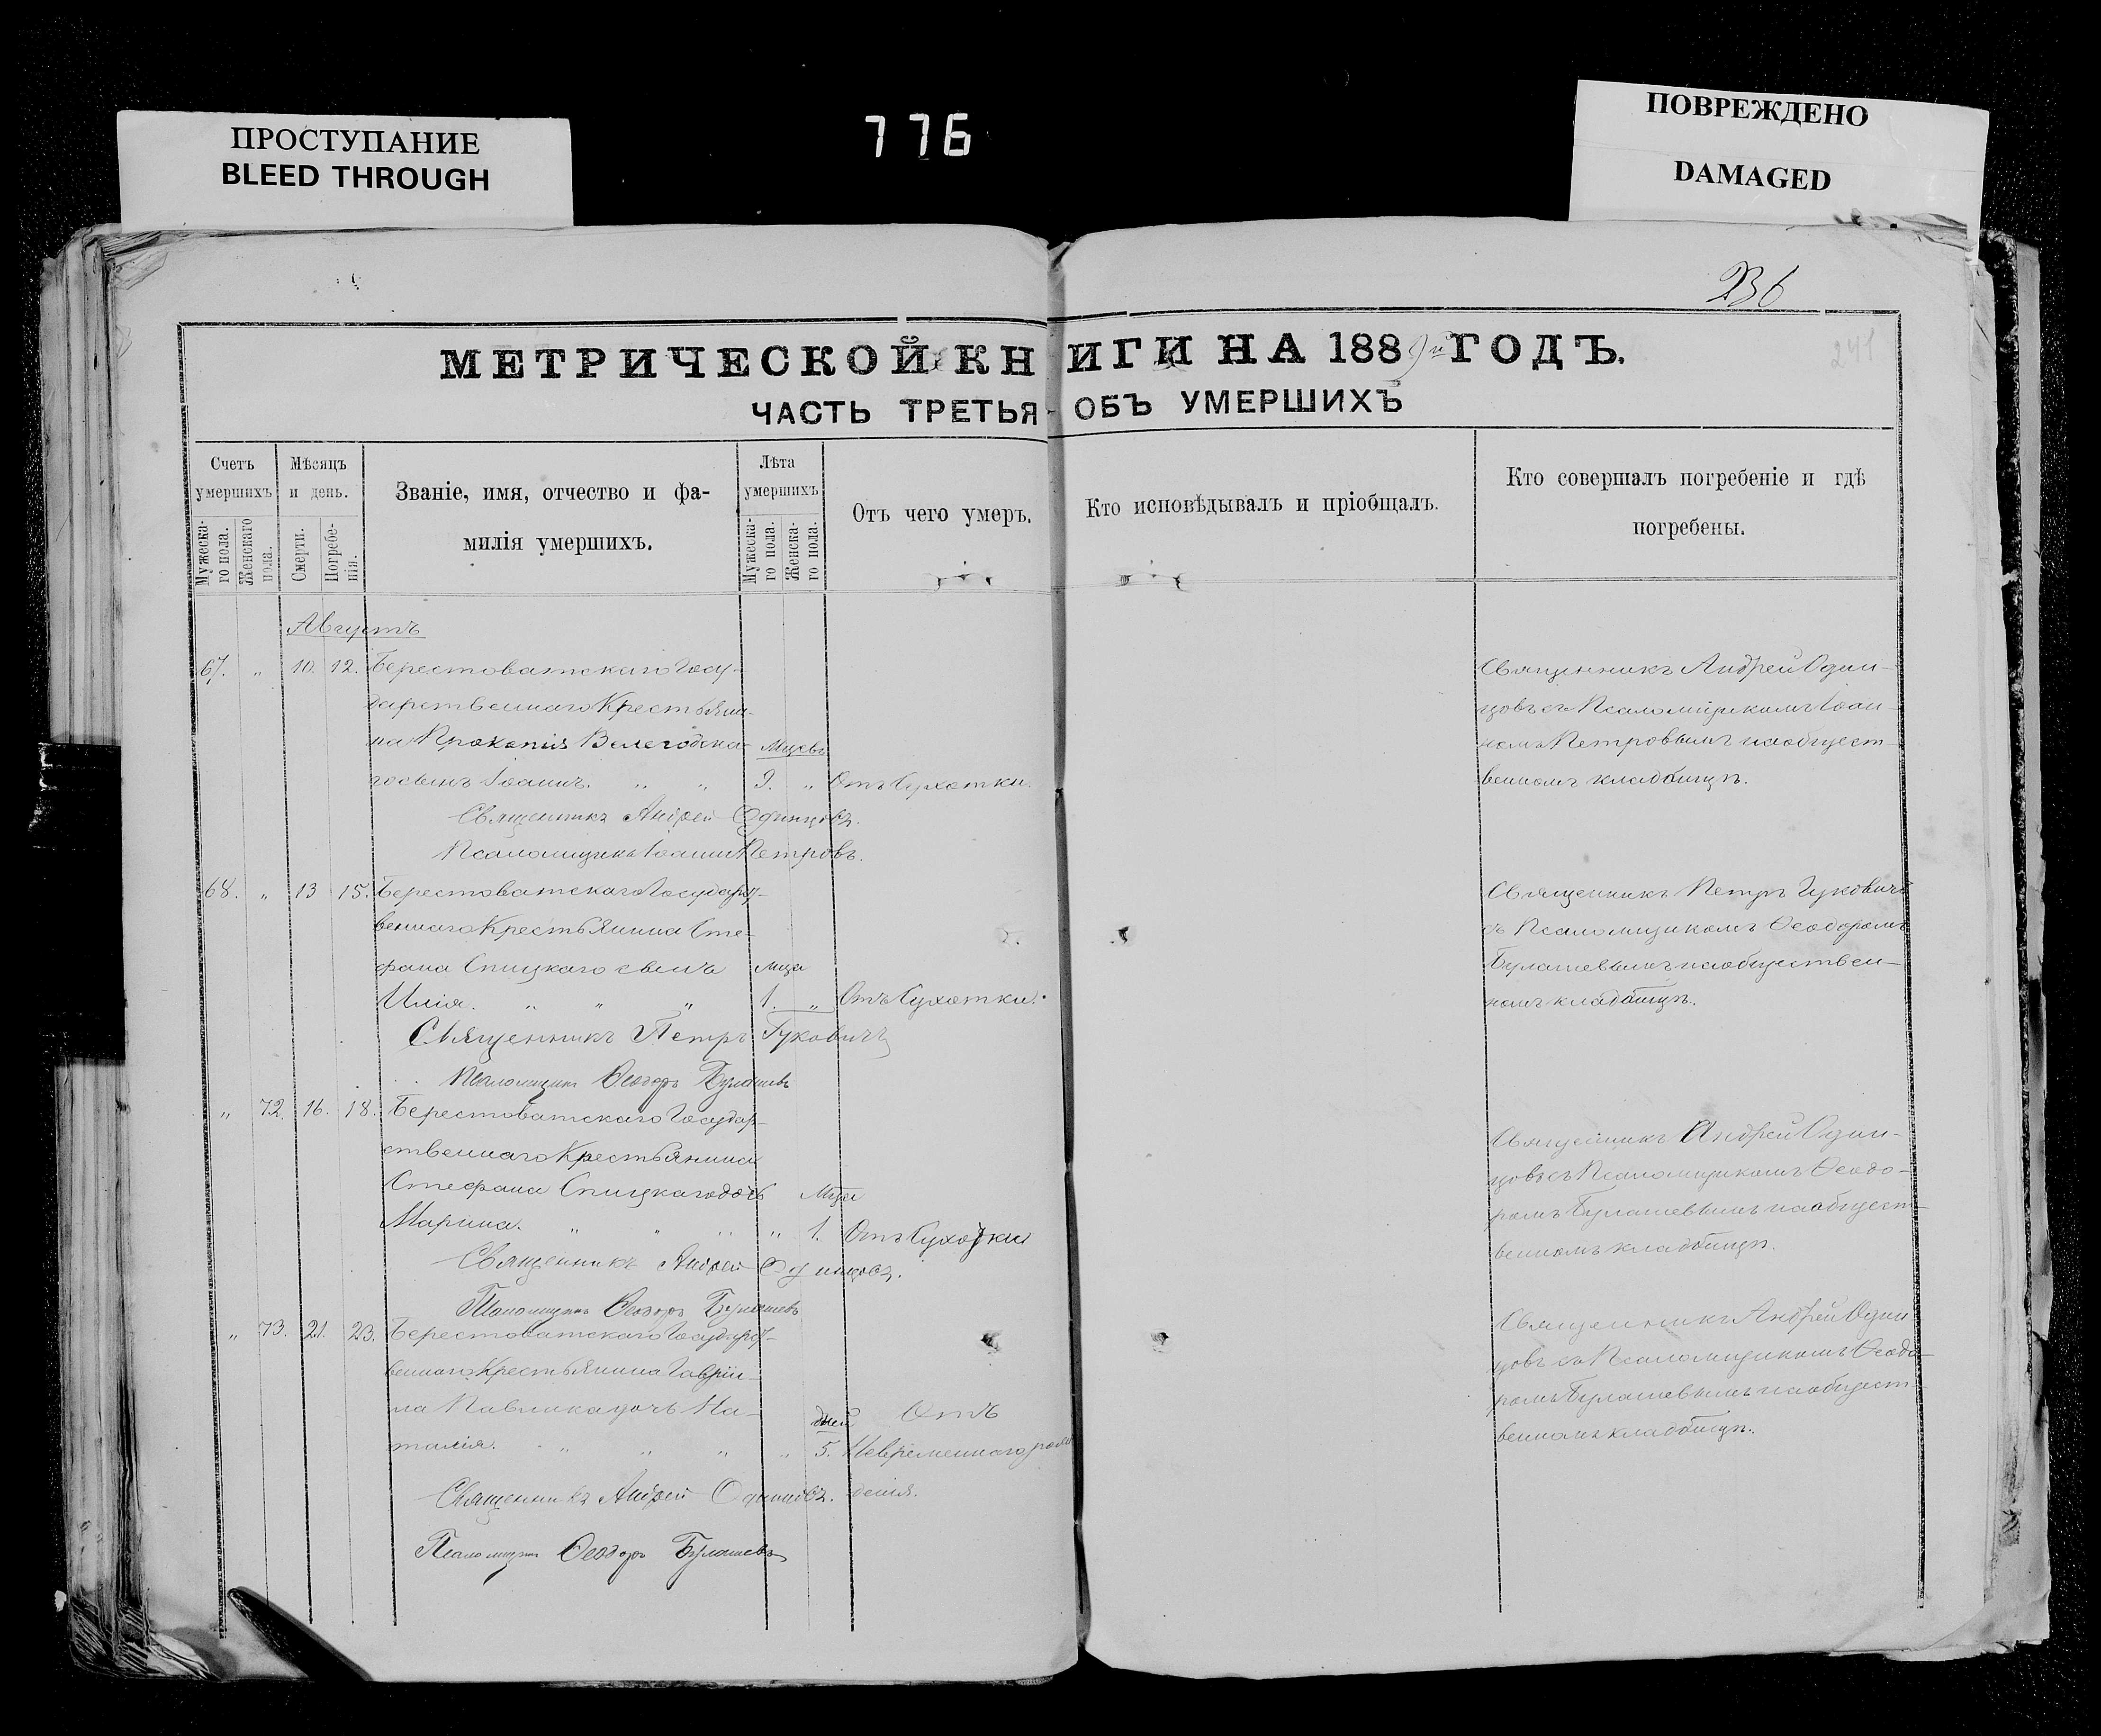 ПРОСТУПАНИЕ
BLEED THROUGH
776
ПОВРЕЖДЕНО
DAMAGED
236
241
МЕТРИЧЕСКОЙ КНИГИ НА 1889й ГОДЪ.
ЧАСТЬ ТРЕТЬЯ ОБЪ УМЕРШИХЪ
Счетъ умершихъ
Мужеска-го пола.
Женскаго пола.
Мѣсяцъ и день.
Смерти.
Погребе-нія.
Званіе, имя, отчество и фа-
милія умершихъ.
Лѣта умершихъ
Мужеска-го пола.
Женска-го пола.
Отъ чего умеръ.
Кто исповѣдывалъ и пріобщалъ.
Кто совершалъ погребеніе и гдѣ
погребены.
Августъ
67. „ 10. 12. Берестоватскаго Госу-
дарственнаго Крестьяни-
на Прокопія Велегодска- Мцевъ
го сынъ Іоаннъ. „ „ 9. „ Отъ Сухотки.
Священникъ Андрей Одинцовъ.
Псаломщикъ Іоаннъ Петровъ.
Священникъ Андрей Один-
цовъ съ Псаломщикомъ Іоан-
номъ Петровымъ на общест-
венномъ кладбищѣ.
68. „ 13 15. Берестоватскаго Государст-
веннаго Крестьянина Сте-
фана Спицкаго сынъ Мца
Илія. „ „ „ 1. „ Отъ Сухотки.
Священникъ Петръ Гуковичъ
Псаломщикъ Ѳеодоръ Булашевъ
Священникъ Петръ Гуковичъ
съ Псаломщикомъ Ѳеодоромъ
Булашевымъ на обществен-
номъ кладбищѣ.
„ 72. 16. 18. Берестоватскаго Государ-
ственнаго Крестьянина
Стефана Спицкаго дочь Мца
Марина. „ „ „ „ 1. Отъ Сухотки
Священникъ Андрей Одинцовъ.
Псаломщикъ Ѳеодоръ Булашевъ
Священникъ Андрей Один-
цовъ съ Псаломщикомъ Ѳеодо-
ромъ Булашевымъ на общест-
венномъ кладбищѣ.
„ 73. 21. 23. Берестоватскаго Государст-
веннаго Крестьянина Гаврии-
ла Павлика дочь На- дней Отъ
талія. „ „ „ „ 5. Невременнаго рож-
Священникъ Андрей Одинцовъ. денія.
Псаломщикъ Ѳеодоръ Булашевъ
Священникъ Андрей Один
цовъ съ Псаломщикомъ Ѳеодо-
ромъ Булашевымъ на общест
венномъ кладбищѣ.